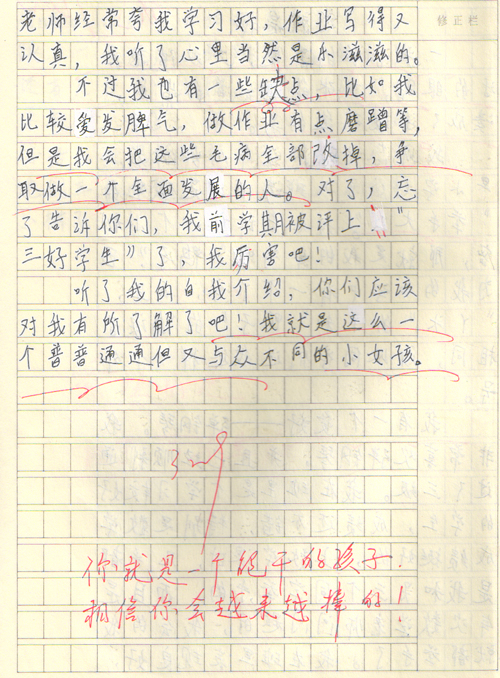 修正栏
老师经常夸我学习好，作业写得又
认真，我听了心里当然是乐滋滋的。
不过我也有一些缺点，比如我
比较爱发脾气，做作业有点磨蹭等，
但是我会把这些毛病全部改掉，争
取做一个全面发展的人。对了，忘
了告诉你们，我前学期被评上“
三好学生”了，我厉害吧！
听了我的自我介绍，你们应该
对我有所了解了吧！我就是这么一
个普普通通但又与众不同的小女孩。
你就是一个能干的孩子！
相信你会越来越棒的！